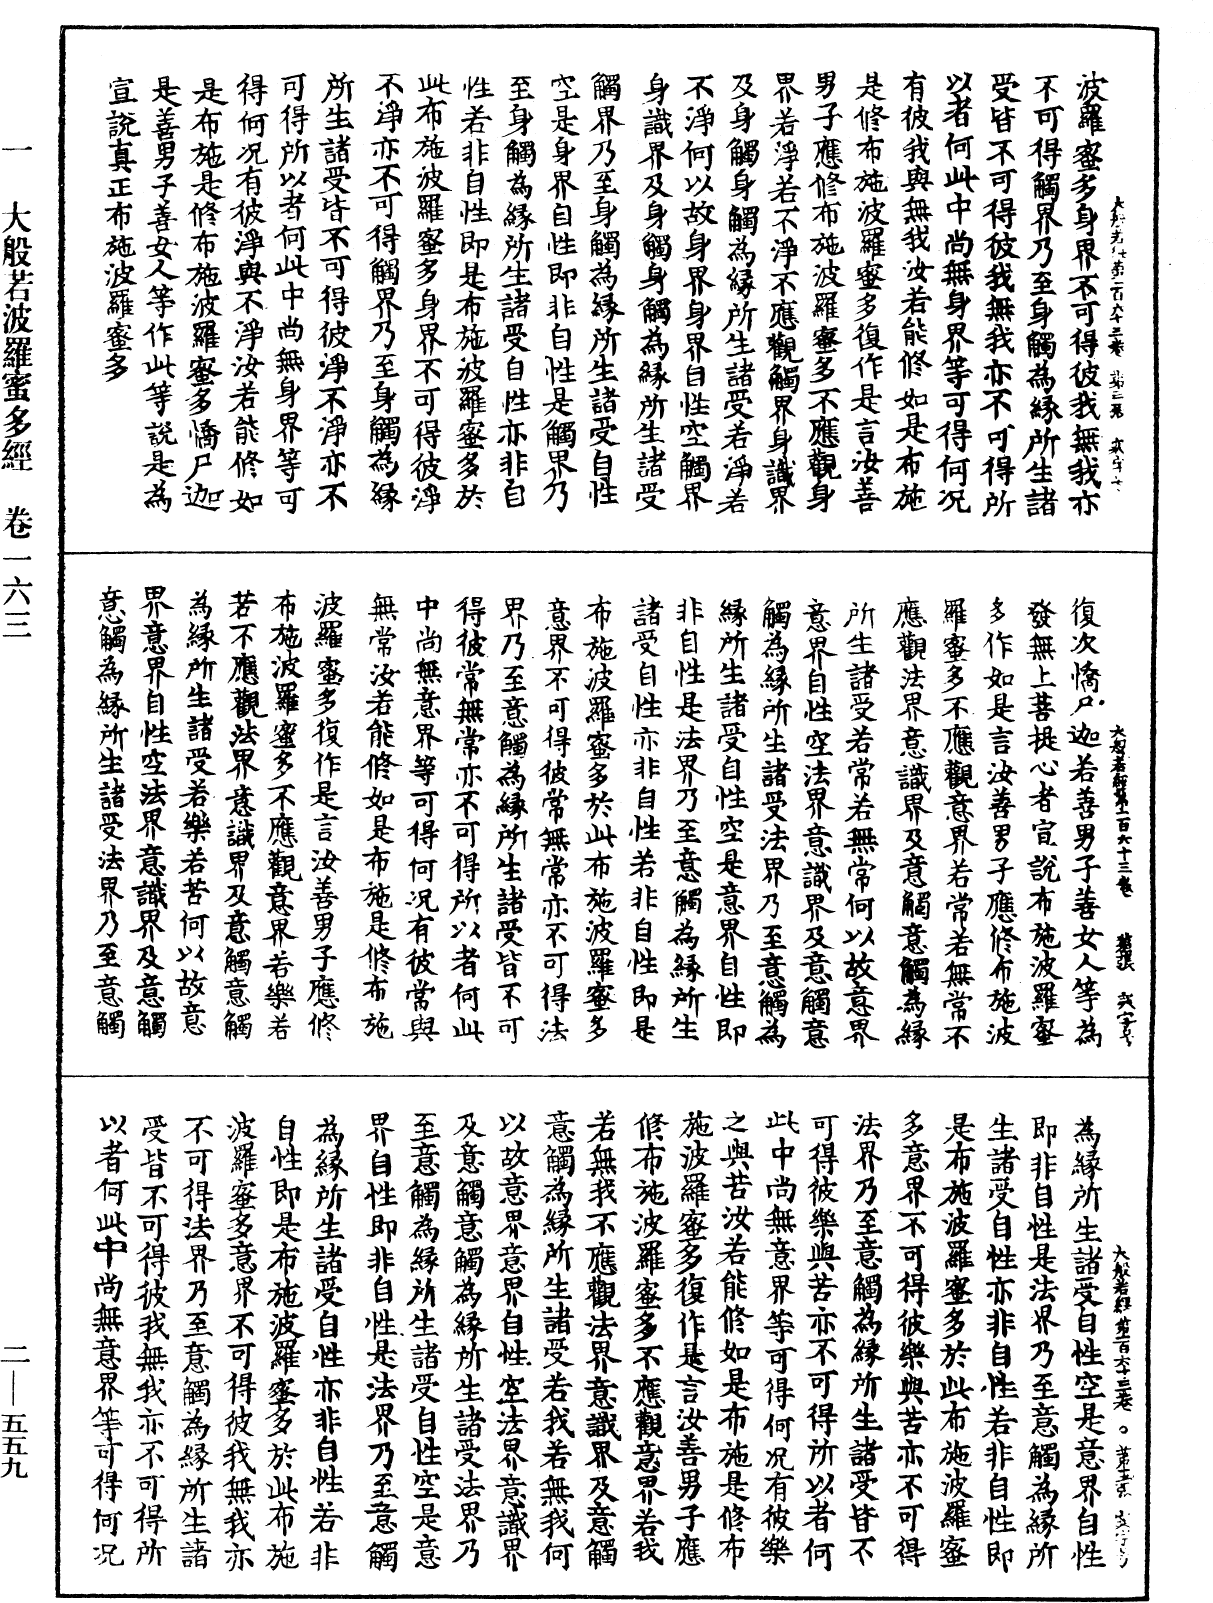 波羅蜜多身界不可得彼我無我亦
不可得觸界乃至身觸為緣所生諸
受皆不可得彼我無我亦不可得所
以者何此中尚無身界等可得何況
有彼我與無我汝若能修如是布施
是修布施波羅蜜多復作是言汝善
男子應修布施波羅蜜多不應觀身
界若淨若不淨不應觀觸界身識界
及身觸身觸為緣所生諸受若淨若
不淨何以故身界身界自性空觸界
身識界及身觸身觸為緣所生諸受
觸界乃至身觸為緣所生諸受自性
空是身界自性即非自性是觸界乃
至身觸為緣所生諸受自性亦非自
性若非自性即是布施波羅蜜多於
此布施波羅蜜多身界不可得彼淨
不淨亦不可得觸界乃至身觸為緣
所生諸受皆不可得彼淨不淨亦不
可得所以者何此中尚無身界等可
得何況有彼淨與不淨汝若能修如
是布施是修布施波羅蜜多憍尸迦
是善男子善女人等作此等說是為
宣說真正布施波羅蜜多
大般若經第一百六十三卷
復次憍尸迦若善男子善女人等為
發無上菩提心者宣說布施波羅蜜
多作如是言汝善男子應修布施波
羅蜜多不應觀意界若常若無常不
應觀法界意識界及意觸意觸為緣
所生諸受若常若無常何以故意界
意界自性空法界意識界及意觸意
觸為緣所生諸受法界乃至意觸為
緣所生諸受自性空是意界自性即
非自性是法界乃至意觸為緣所生
諸受自性亦非自性若非自性即是
布施波羅蜜多於此布施波羅蜜多
意界不可得彼常無常亦不可得法
界乃至意觸為緣所生諸受皆不可
得彼常無常亦不可得所以者何此
中尚無意界等可得何況有彼常與
無常汝若能修如是布施是修布施
波羅蜜多復作是言汝善男子應修
布施波羅蜜多不應觀意界若樂若
苦不應觀法界意識界及意觸意觸
為緣所生諸受若樂若苦何以故意
界意界自性空法界意識界及意觸
意觸為緣所生諸受法界乃至意觸
大般若經第一百六十三卷
為緣所生諸受自性空是意界自性
即非自性是法界乃至意觸為緣所
生諸受自性亦非自性若非自性即
是布施波羅蜜多於此布施波羅蜜
多意界不可得彼樂與苦亦不可得
法界乃至意觸為緣所生諸受皆不
可得彼樂與苦亦不可得所以者何
此中尚無意界等可得何況有彼樂
之與苦汝若能修如是布施是修布
施波羅蜜多復作是言汝善男子應
修布施波羅蜜多不應觀意界若我
若無我不應觀法界意識界及意觸
意觸為緣所生諸受若我若無我何
以故意界意界自性空法界意識界
及意觸意觸為緣所生諸受法界乃
至意觸為緣所生諸受自性空是意
界自性即非自性是法界乃至意觸
為緣所生諸受自性亦非自性若非
自性即是布施波羅蜜多於此布施
波羅蜜多意界不可得彼我無我亦
不可得法界乃至意觸為緣所生諸
受皆不可得彼我無我亦不可得所
以者何此中尚無意界等可得何況
一 大般若波羅蜜多經 卷一六三
二—五五九